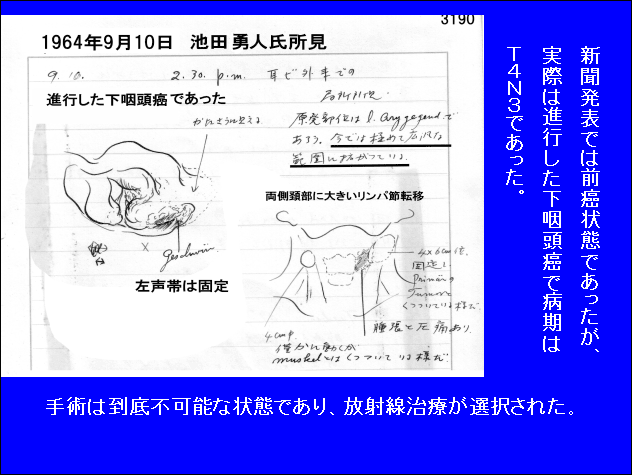 3190
1964年9月10日　池田勇人氏所見
9.10.　2.30. p.m. 耳ビ外来での
局所所見.
進行した下咽頭癌であった
原発部位は l. Arygegend で
あろう. 今では極めて広汎な
範囲に拡がつている.
両側頚部に大きいリンパ節転移
左声帯は固定
4×6cm
固定し
primärの
Tumorと
くつついている様だ
腫脹と圧痛あり
僅かに動くが
muskelとはくつついている様だ
新聞発表では前癌状態であったが、
実際は進行した下咽頭癌で病期は
T4N3であった。
手術は到底不可能な状態であり、放射線治療が選択された。